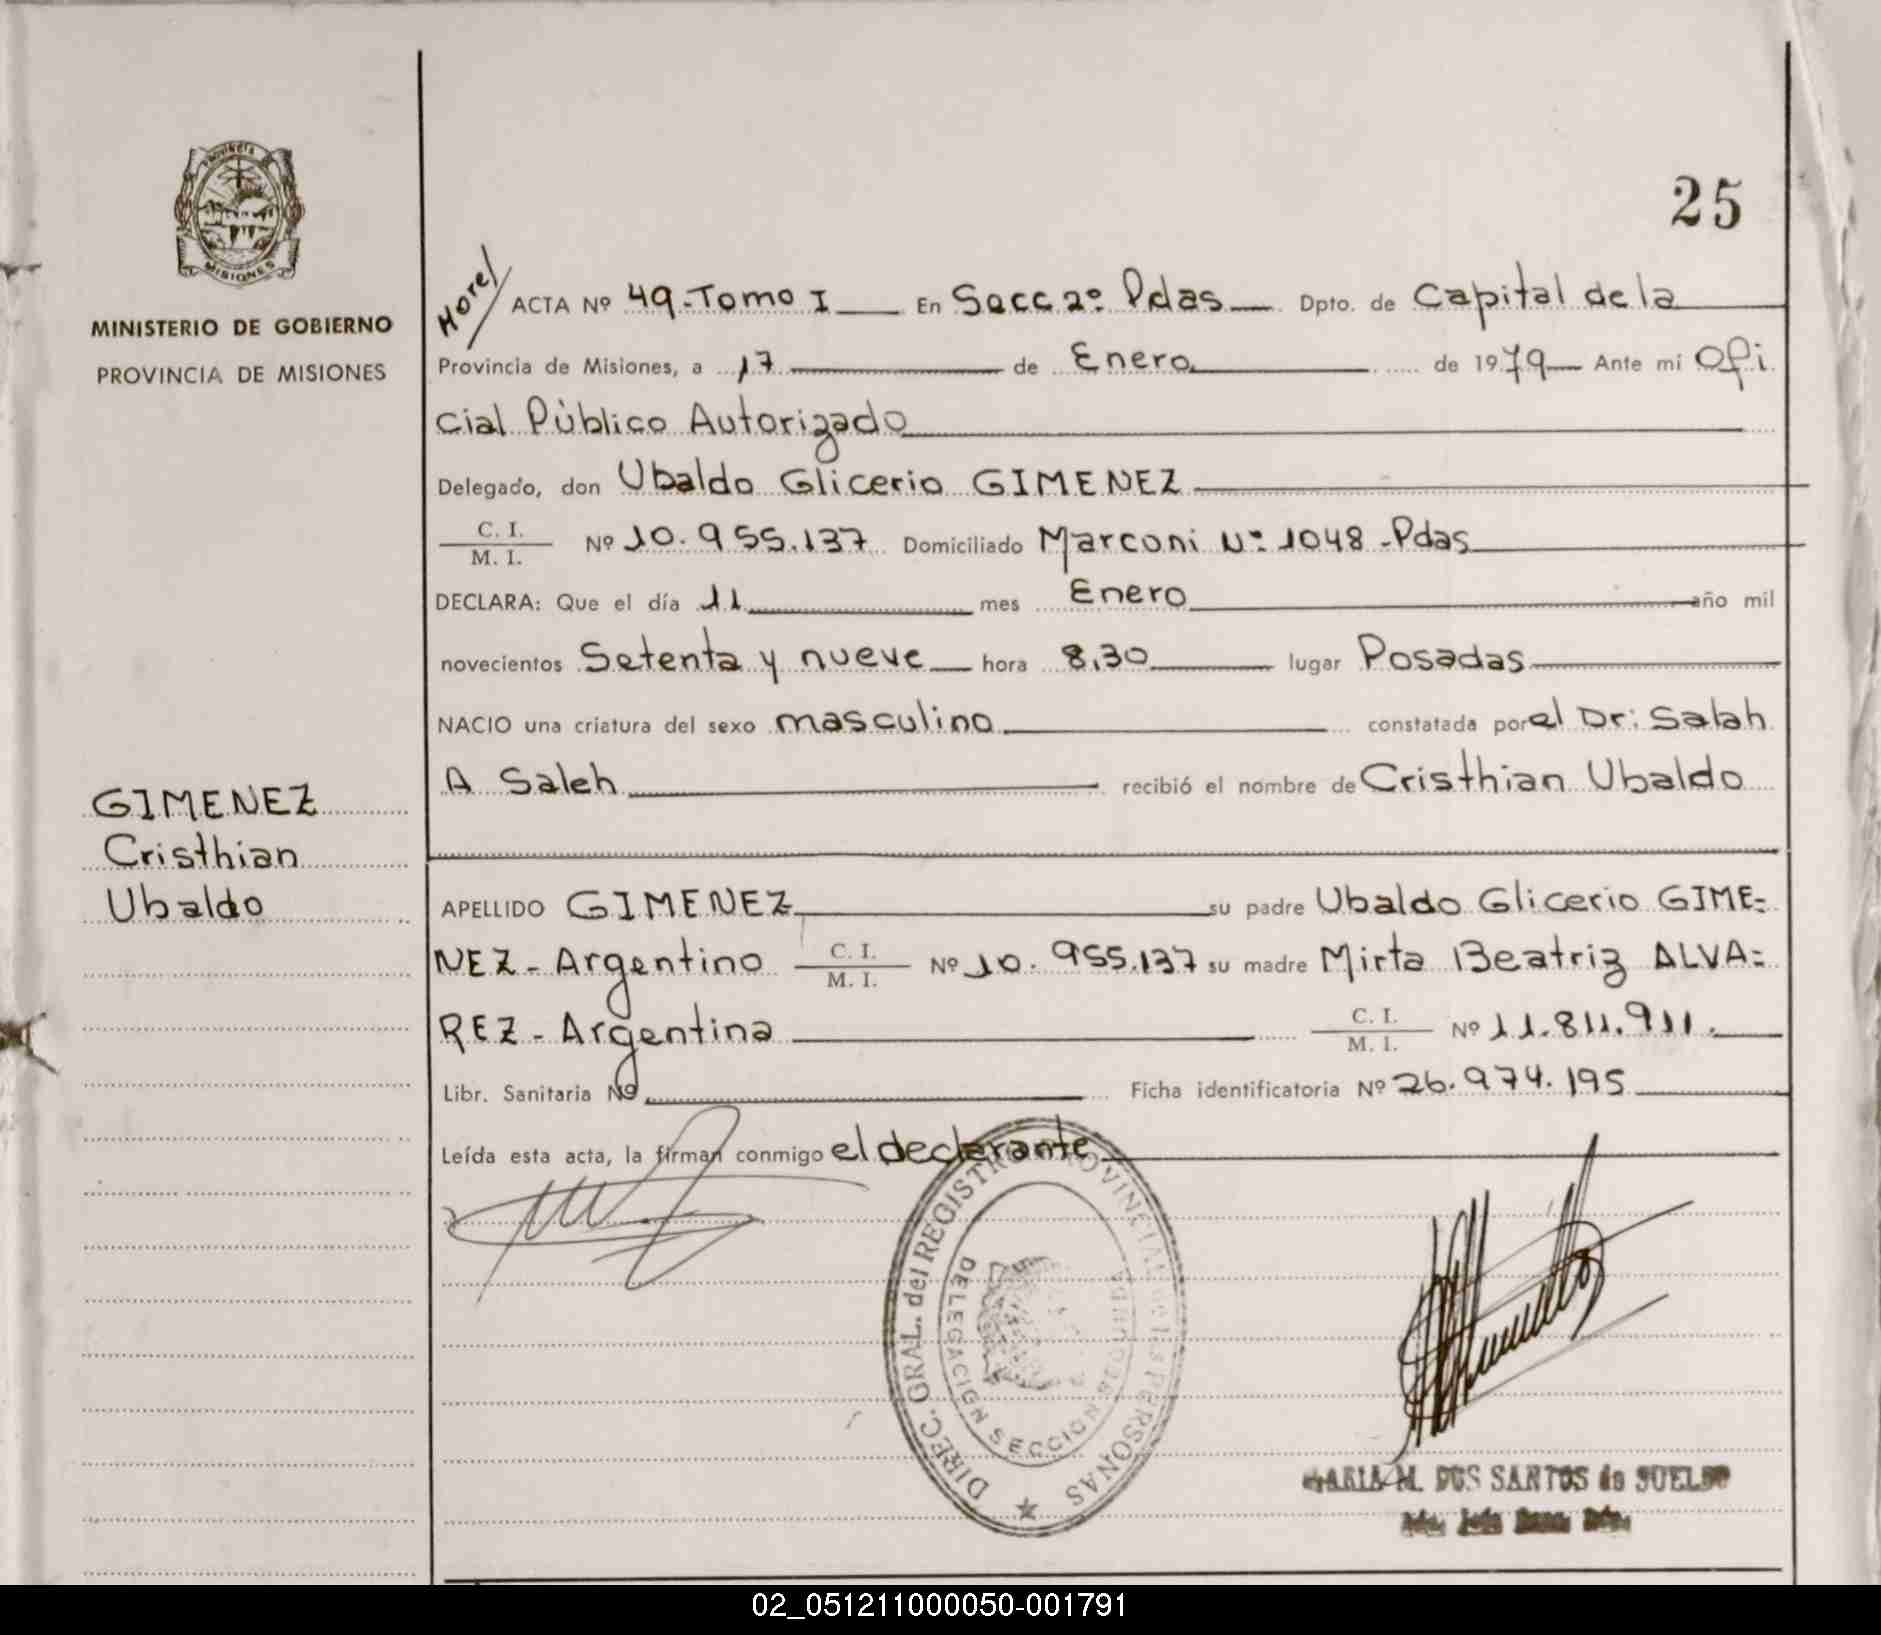 PROVINCIA
MISIONES
MINISTERIO DE GOBIERNO
PROVINCIA DE MISIONES
25
ACTA Nº 49-Tomo I En Secc 2º Pdas Dpto. de Capital de la
Provincia de Misiones, a 17 de Enero de 1979 Ante mi Ofi
cial Público Autorizado
Delegado, don Ubaldo Glicerio GIMENEZ
C. I.
M. I. Nº 10.955.137 Domiciliado Marconi Nº 1048 -Pdas
DECLARA: Que el día 11 mes Enero año mil
novecientos Setenta y nueve hora 8,30 lugar Posadas
NACIO una criatura del sexo masculino constatada por el Dr: Salah
A Saleh recibió el nombre de Cristhian Ubaldo
GIMENEZ
Cristhian
Ubaldo
APELLIDO GIMENEZ su padre Ubaldo Glicerio GIME=
NEZ - Argentino C. I. M. I. Nº 10.955.137 su madre Mirta Beatriz ALVA=
REZ - Argentina C. I. M. I. Nº 11.811.911.
Libr. Sanitaria Nº Ficha identificatoria Nº 26.974.195
Leída esta acta, la firman conmigo el declarante
DIREC. GRAL. del REGISTRO PROVINCIAL de las PERSONAS
DELEGACION SECCION SEGUNDA
MARIA M. DOS SANTOS de SUELDO
02_051211000050-001791